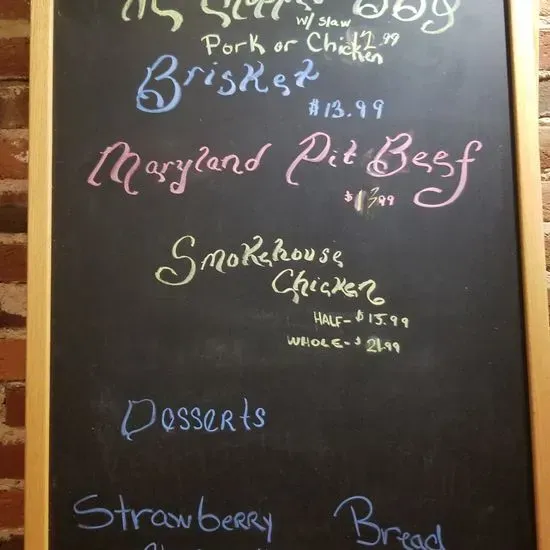 BBQ
w/ slaw
Pork or Chicken 12.99
Brisket
$13.99
Maryland Pit Beef
$13.99
Smokehouse
Chicken
HALF- $15.99
WHOLE- $21.99
Desserts
Strawberry Bread